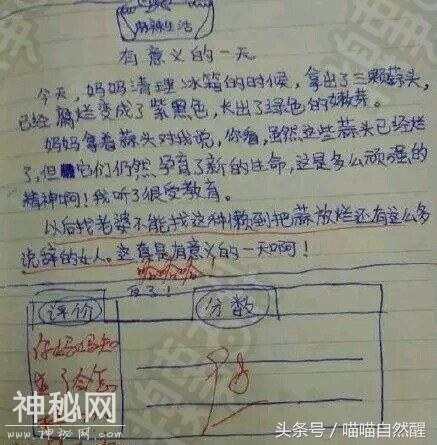 麻辣生活
有意义的一天
今天，妈妈清理冰箱的时候，拿出了三颗蒜头，
已经腐烂变成了紫黑色，长出了绿色的嫩芽。
妈妈拿着蒜头对我说，你看，虽然这些蒜头已经烂
了，但它们仍然孕育了新的生命，这是多么顽强的
精神啊！我听了很受教育。
以后找老婆不能找这种懒到把蒜放烂还有这么多
说辞的女人。这真是有意义的一天啊！
哈哈哈
评价
分数
你妈妈知
神秘网
www.神秘网.com
头条号/喵喵自然醒